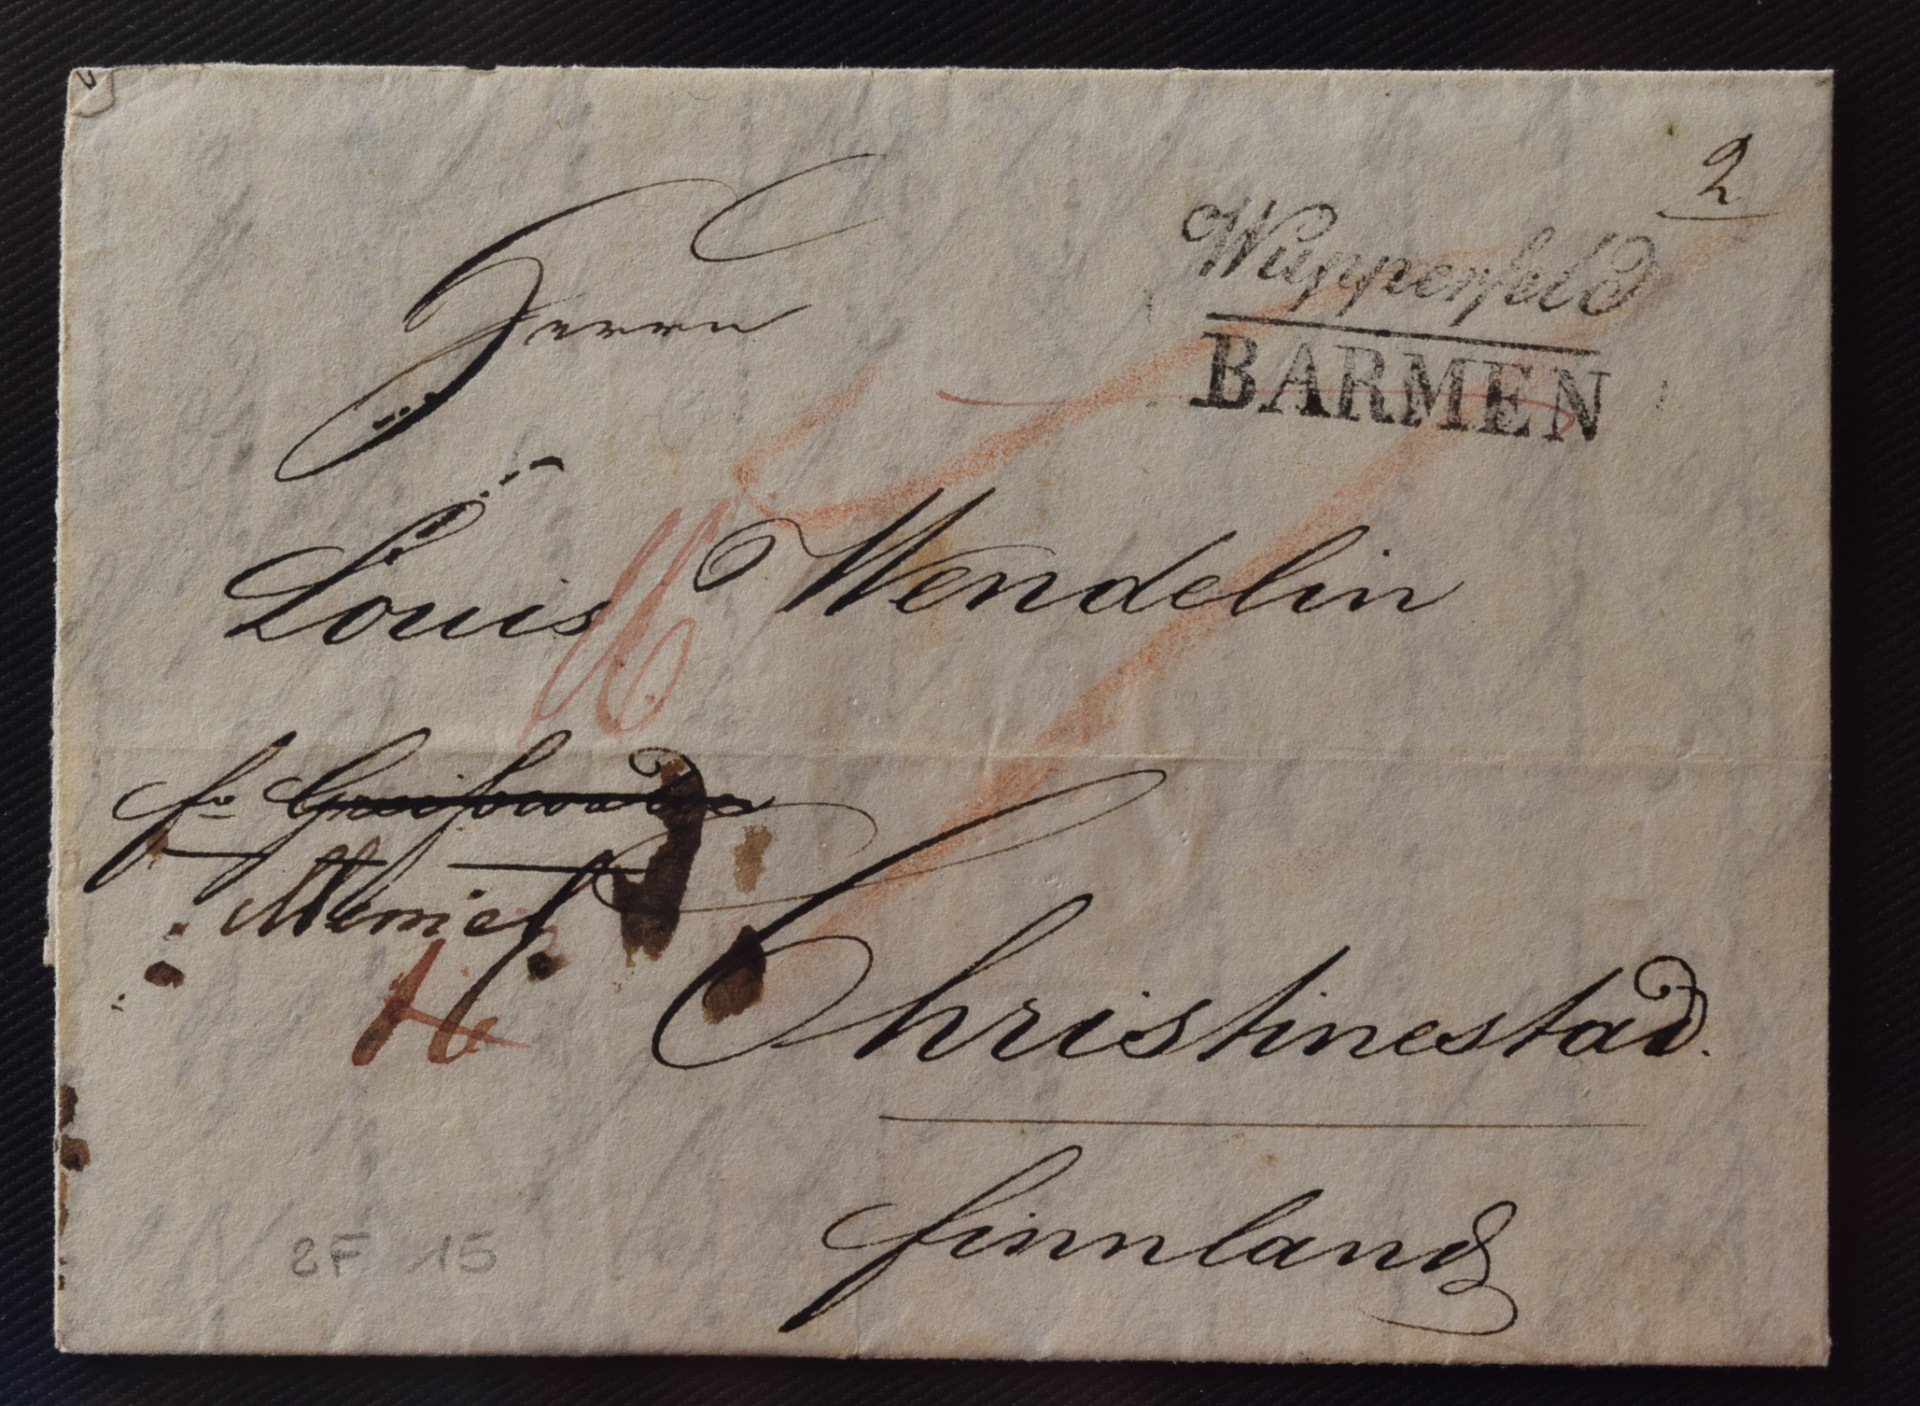 2
Wupperfeld
BARMEN
Herrn
Louis Wendelin
fo Greifswalde
Memel
Christinestad.
finnland
2F 15